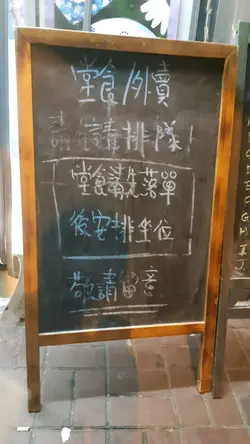 堂食/外賣
請排隊!
堂食請先落單
後安排坐位
敬請留意